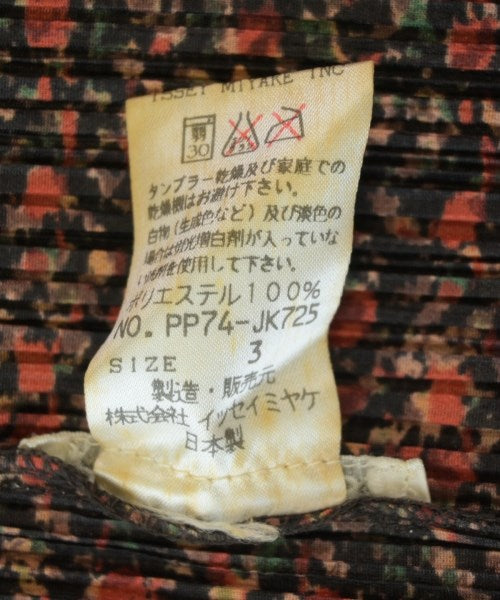 ISSEY MIYAKE INC
弱
30
タンブラー乾燥及び家庭での
乾燥機はお避け下さい。
白物(生成色など)及び淡色の
場合は蛍光増白剤が入っていな
い洗剤を使用して下さい。
ポリエステル100%
NO. PP74-JK725
SIZE 3
製造・販売元
株式会社 イッセイミヤケ
日本製